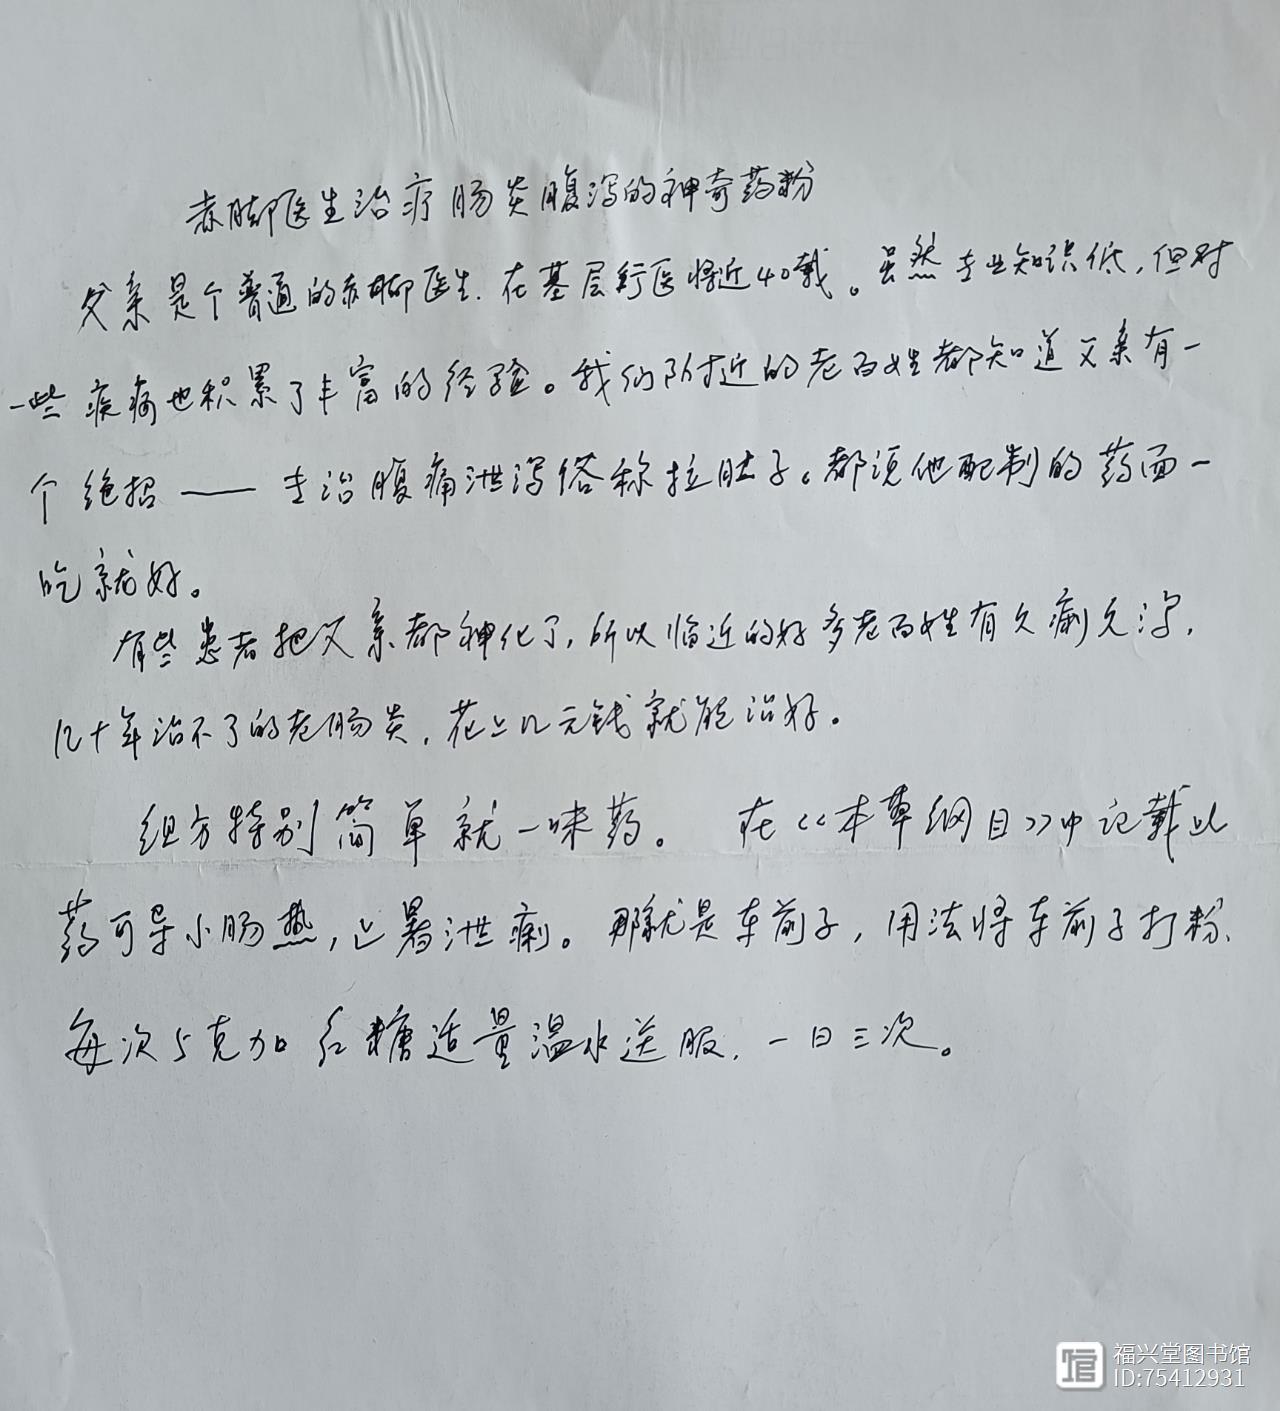 赤脚医生治疗肠炎腹泻的神奇药粉
父亲是个普通的赤脚医生.在基层行医将近40载。虽然专业知识低,但对
一些疾病也积累了丰富的经验。我们附近的老百姓都知道父亲有一
个绝招——专治腹痛泄泻俗称拉肚子。都说他配制的药面一
吃就好。
有些患者把父亲都神化了,所以临近的好多老百姓有久痢久泻,
几十年治不了的老肠炎,花上几元钱就能治好。
组方特别简单就一味药。 在《本草纲目》中记载此
药可导小肠热,止暑泄痢。那就是车前子,用法将车前子打粉、
每次5克加红糖适量温水送服.一日三次。
福兴堂图书馆
ID:75412931